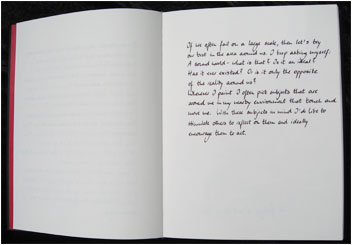 If we often fail on a large scale, then let's try
our best in the area around us. I keep asking myself.
A sound world - what is that? Is it an ideal?
Has it ever existed? Or is it only the opposite
of the reality around us?
Whenever I paint I often pick subjects that are
around me in my nearby environment that touch and
move me. With these subjects in mind I'd like to
stimulate others to reflect on them and ideally
encourage them to act.